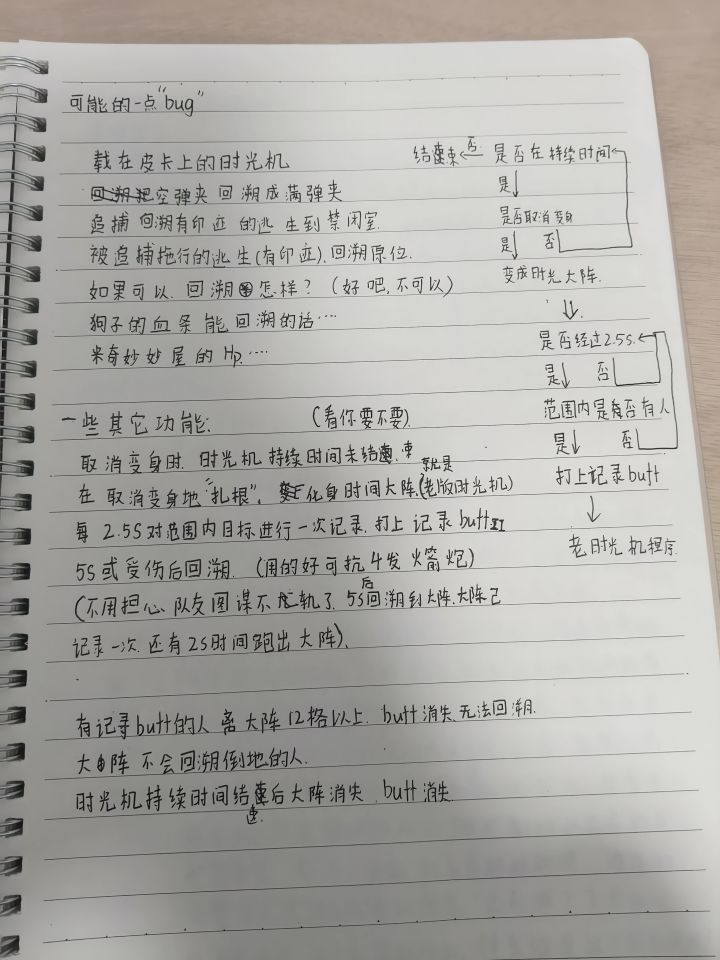 可能的一点"bug"
载在皮卡上的时光机
空弹夹 回溯成满弹夹
追捕 回溯有印迹 的逃 生到 禁闭室.
被追捕拖行的逃生(有印迹).回溯原位.
如果可以. 回溯 怎样? (好吧,不可以)
狗子的血条 能回溯的话····
米奇妙妙屋的 Hp.····
一些其它功能: (看你要不要).
取消变身时. 时光机 持续时间未结束
在 取消变身地"扎根". 化身时间大阵.(就是老版时光机)
每 2.5S对范围内目标进行一次记录.打上 记录 buff
5S或受伤后回溯. (用的好可抗4发 火箭炮)
(不用担心 队友图谋不轨了. 5S后回溯到大阵.大阵已
记录一次.还有2S时间跑出大阵).
有记录buff的人 离 大阵12格以上. buff消失.无法回溯.
大阵 不会回溯倒地的人.
时光机持续时间结束后大阵消失. buff消失.
结束 ← 否 是否在持续时间
是
是否取消变身
是 否
变成时光大阵.
是否经过2.5s.
是 否
范围内是否有人
是 否
打上记录buff
老时光机程序.